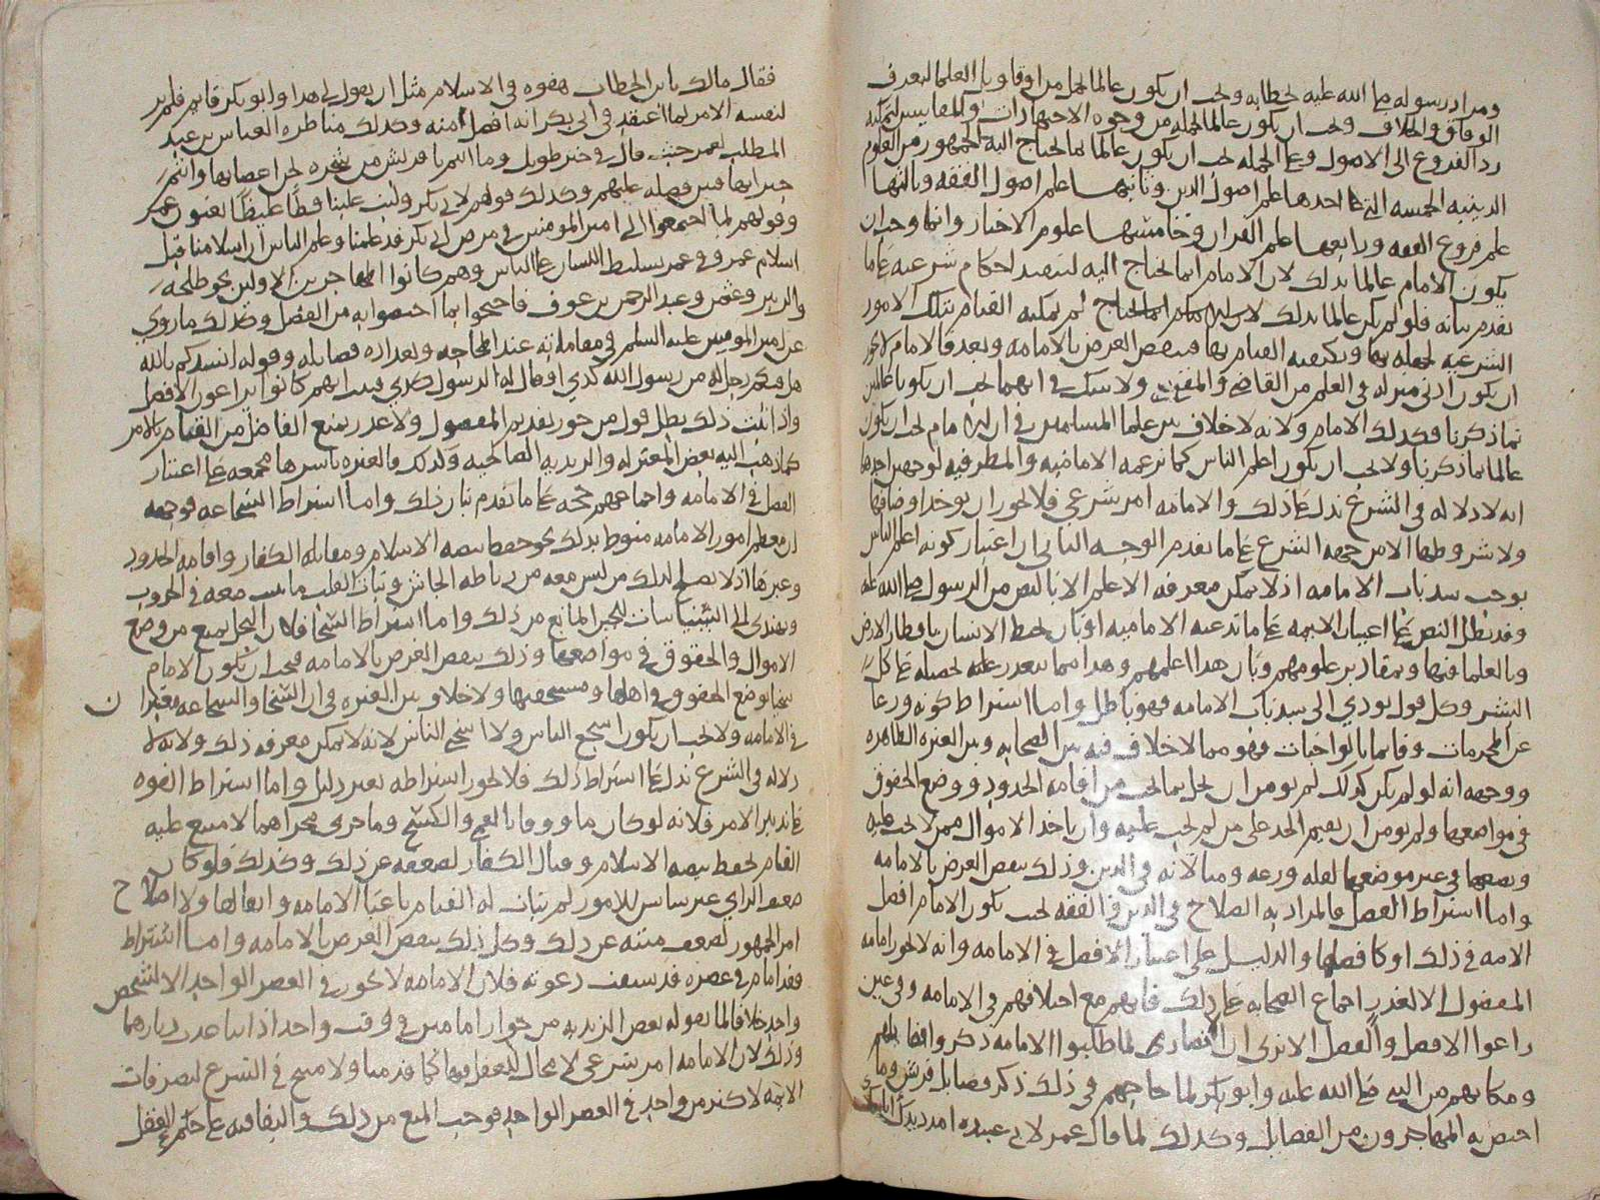 ومراد رسوله صلى الله عليه بخطابه ويجب ان يكون عالما بجمل من اقاويل العلما ليعرف
الوفاق والخلاف ويجب ان يكون عالما بجمله من وجوه الاجتهادات والمقاييس ليمكنه
رد الفروع الى الاصول وعلى الجمله يجب ان يكون عالما بما يحتاج اليه الجمهور من العلوم
الدينيه الخمسه التي احدها علم اصول الدين وثانيها علم اصول الفقه وثالثها
علم فروع الفقه ورابعها علم القران وخامسها علوم الاخبار وانما وجب ان
يكون الامام عالما بذلك لان الامام انما يحتاج اليه لتنفيذ احكام شرعيه على ما
تقدم بيانه فلو لم يكن عالما بذلك لم يمكنه القيام بتلك الامور
الشرعيه لجهله بها وبكيفيه القيام بها فينقض الغرض بالامامه وبعد فالامام لا يجوز
ان يكون ادنى منزله في العلم من القاضي والمفتي ولا شك في انهما يجب ان يكونا عالمين
بما ذكرنا فكذلك الامام ولانه لا خلاف بين علما المسلمين في ان الامام يجب ان يكون
عالما بما ذكرنا ولا يجب ان يكون اعلم الناس كما تزعمه الاماميه والمطرفيه لوجهين احدهما
انه لا دلاله في الشرع تدل على ذلك والامامه امر شرعي فلا يجوز ان يوخذ اوصافها
ولا شروطها الا من جهه الشرع على ما تقدم الوجه الثاني ان اعتبار كونه اعلم الناس
يوجب سد باب الامامه اذ لا يمكن معرفه الاعلم الا بالنص من الرسول صلى الله عليه
وقد بطل النص على اعيان الايمه على ما تدعيه الاماميه او بان يحيط الانسان باقطار الارض
وبالعلما فيها وبمقادير علومهم وبان هذا اعلمهم وهذا مما يتعذر علمه تحصيله على كل
البشر وكل قول يودي الى سد باب الامامه فهو باطل واما اشتراط كونه ورعا
عن المحرمات وقايما بالواجبات فهو مما لا خلاف فيه بين الصحابه وبين العتره الطاهره
ووجهه انه لو لم يكن كذلك لم يومن ان يخل بما يجب من اقامه الحدود ووضع الحقوق
في مواضعها ولم يومن ان يقيم الحد على من لم يجب عليه وان ياخذ الاموال ممن لا تجب عليه
ويضعها في غير موضعها لقله ورعه ومبالاته في الدين وذلك ينقض الغرض بالامامه
واما اشتراط الفضل فالمراد به الصلاح في الدين والفقه يجب بكون الامام افضل
الامه في ذلك او كافضلها والدليل على اعتبار الافضل في الامامه وانه لا يجوز امامه
المفضول الا لعذر اجماع الصحابه على ذلك فانهم مع اختلافهم في الامامه وفي عين
راعوا الافضل والفضل الا ترى ان الانصار لما طلبوا الامامه ذكروا فضايلهم
ومكانهم من النبي صلى الله عليه وابو بكر لما حاجهم في ذلك ذكر فضايل قريش وما
اختص به المهاجرون من الفضايل وكذلك لما قال عمر لابي عبيده امدد يدك ابايعك
فقال مالك يا بن الخطاب هفوه في الاسلام مثل ان يقول لي هذا وابو بكر قايم فلم ير
لنفسه الامر لما اعتقد في ابي بكر انه افضل منه وكذلك مناظره العباس بن عبد
المطلب لعمر حيث قال في خبر طويل وما انتم يا قريش من شجره نحن اغصانها وانتم
جيرانها فبين فضله عليهم وكذلك قولهم لابي بكر وليت علينا فظا غليظا يعنون عمر
وقولهم لما اجتمعوا الى امير المومنين في مرض ابي بكر قد علمنا وعلم الناس ان اسلامنا قبل
اسلام عمر وفي عمر تسليط اللسان على الناس وهم كانوا المهاجرين الاولين نحو طلحه
والزبير وعثمن وعبد الرحمن بن عوف فاحتجوا بما اختصوا به من الفضل وكذلك ما روي
عن امير المومنين عليه السلم في مقاماته عند المحاجه وتعداده فضايله وقوله انشدكم بالله
هل فيكم رجل له من رسول الله كذي او قال له الرسول كذي فبدا انهم كانوا يراعون الافضل
واذا ثبت ذلك بطل قول من جوز تقديم المفضول ولا عذر يمنع الفاضل من القيام بالامر
كما ذهب اليه بعض المعتزله والزيديه الصالحيه وكذلك والعتره باسرها مجمعه على اعتبار
الفضل في الامامه واجماعهم حجه على ما تقدم بيان ذلك واما اشتراط الشجاعه فوجهه
ان معظم امور الامامه منوط بذلك نحو حفظ بيضه الاسلام ومقاتله الكفار واقامه الحدود
وغيرها اذ لا يصلح لذلك من ليس معه من رباطه الجاش وثبات القلب ما يثبت معه في الحروب
ويهتدي الى السياسات للجبن المانع من ذلك واما اشتراط السخا فلان البخل يمنع من وضع
الاموال والحقوق في مواضعها وذلك ينقض الغرض بالامامه فيجب ان يكون الامام
سخيا بوضع الحقوق في اهلها ومستحقيها ولا خلاف بين العتره في ان السخا والشجاعه معتبران
في الامامه ولا يجب ان يكون اشجع الناس ولا اسخى الناس لانه لا يمكن معرفه ذلك ولانه لا
دلاله في الشرع تدل على اشتراط ذلك فلا يجوز اشتراطه بغير دليل واما اشتراط القوه
على تدبير الامر فلانه لو كان ماووفا بالعمى والكسح وما جرى مجراهما لامتنع عليه
القيام بحفظ بيضه الاسلام وقتال الكفار لضعفه عن ذلك وكذلك فلو كان
ضعيف الراي غير سايس للامور لم يتات له القيام باعبا الامامه واثقالها ولا اصلاح
امر الجمهور لضعف منته عن ذلك وكل ذلك ينقض الغرض بالامامه واما اشتراط
فقد امام في عصره قد سبقت دعوته فلان الامامه لا تجوز في العصر الواحد الا لشخص
واحد خلافا لما يقوله بعض الزيديه من جواز امامين في وقت واحد اذا تباعدت ديارهما
وذلك لان الامامه امر شرعي لا مجال للعقل فيها كما قدمنا ولا مبيح في الشرع لتصرفات
الايمه لاكثر من واحد في العصر الواحد فوجب المنع من ذلك والبقا فيه على حكم العقل